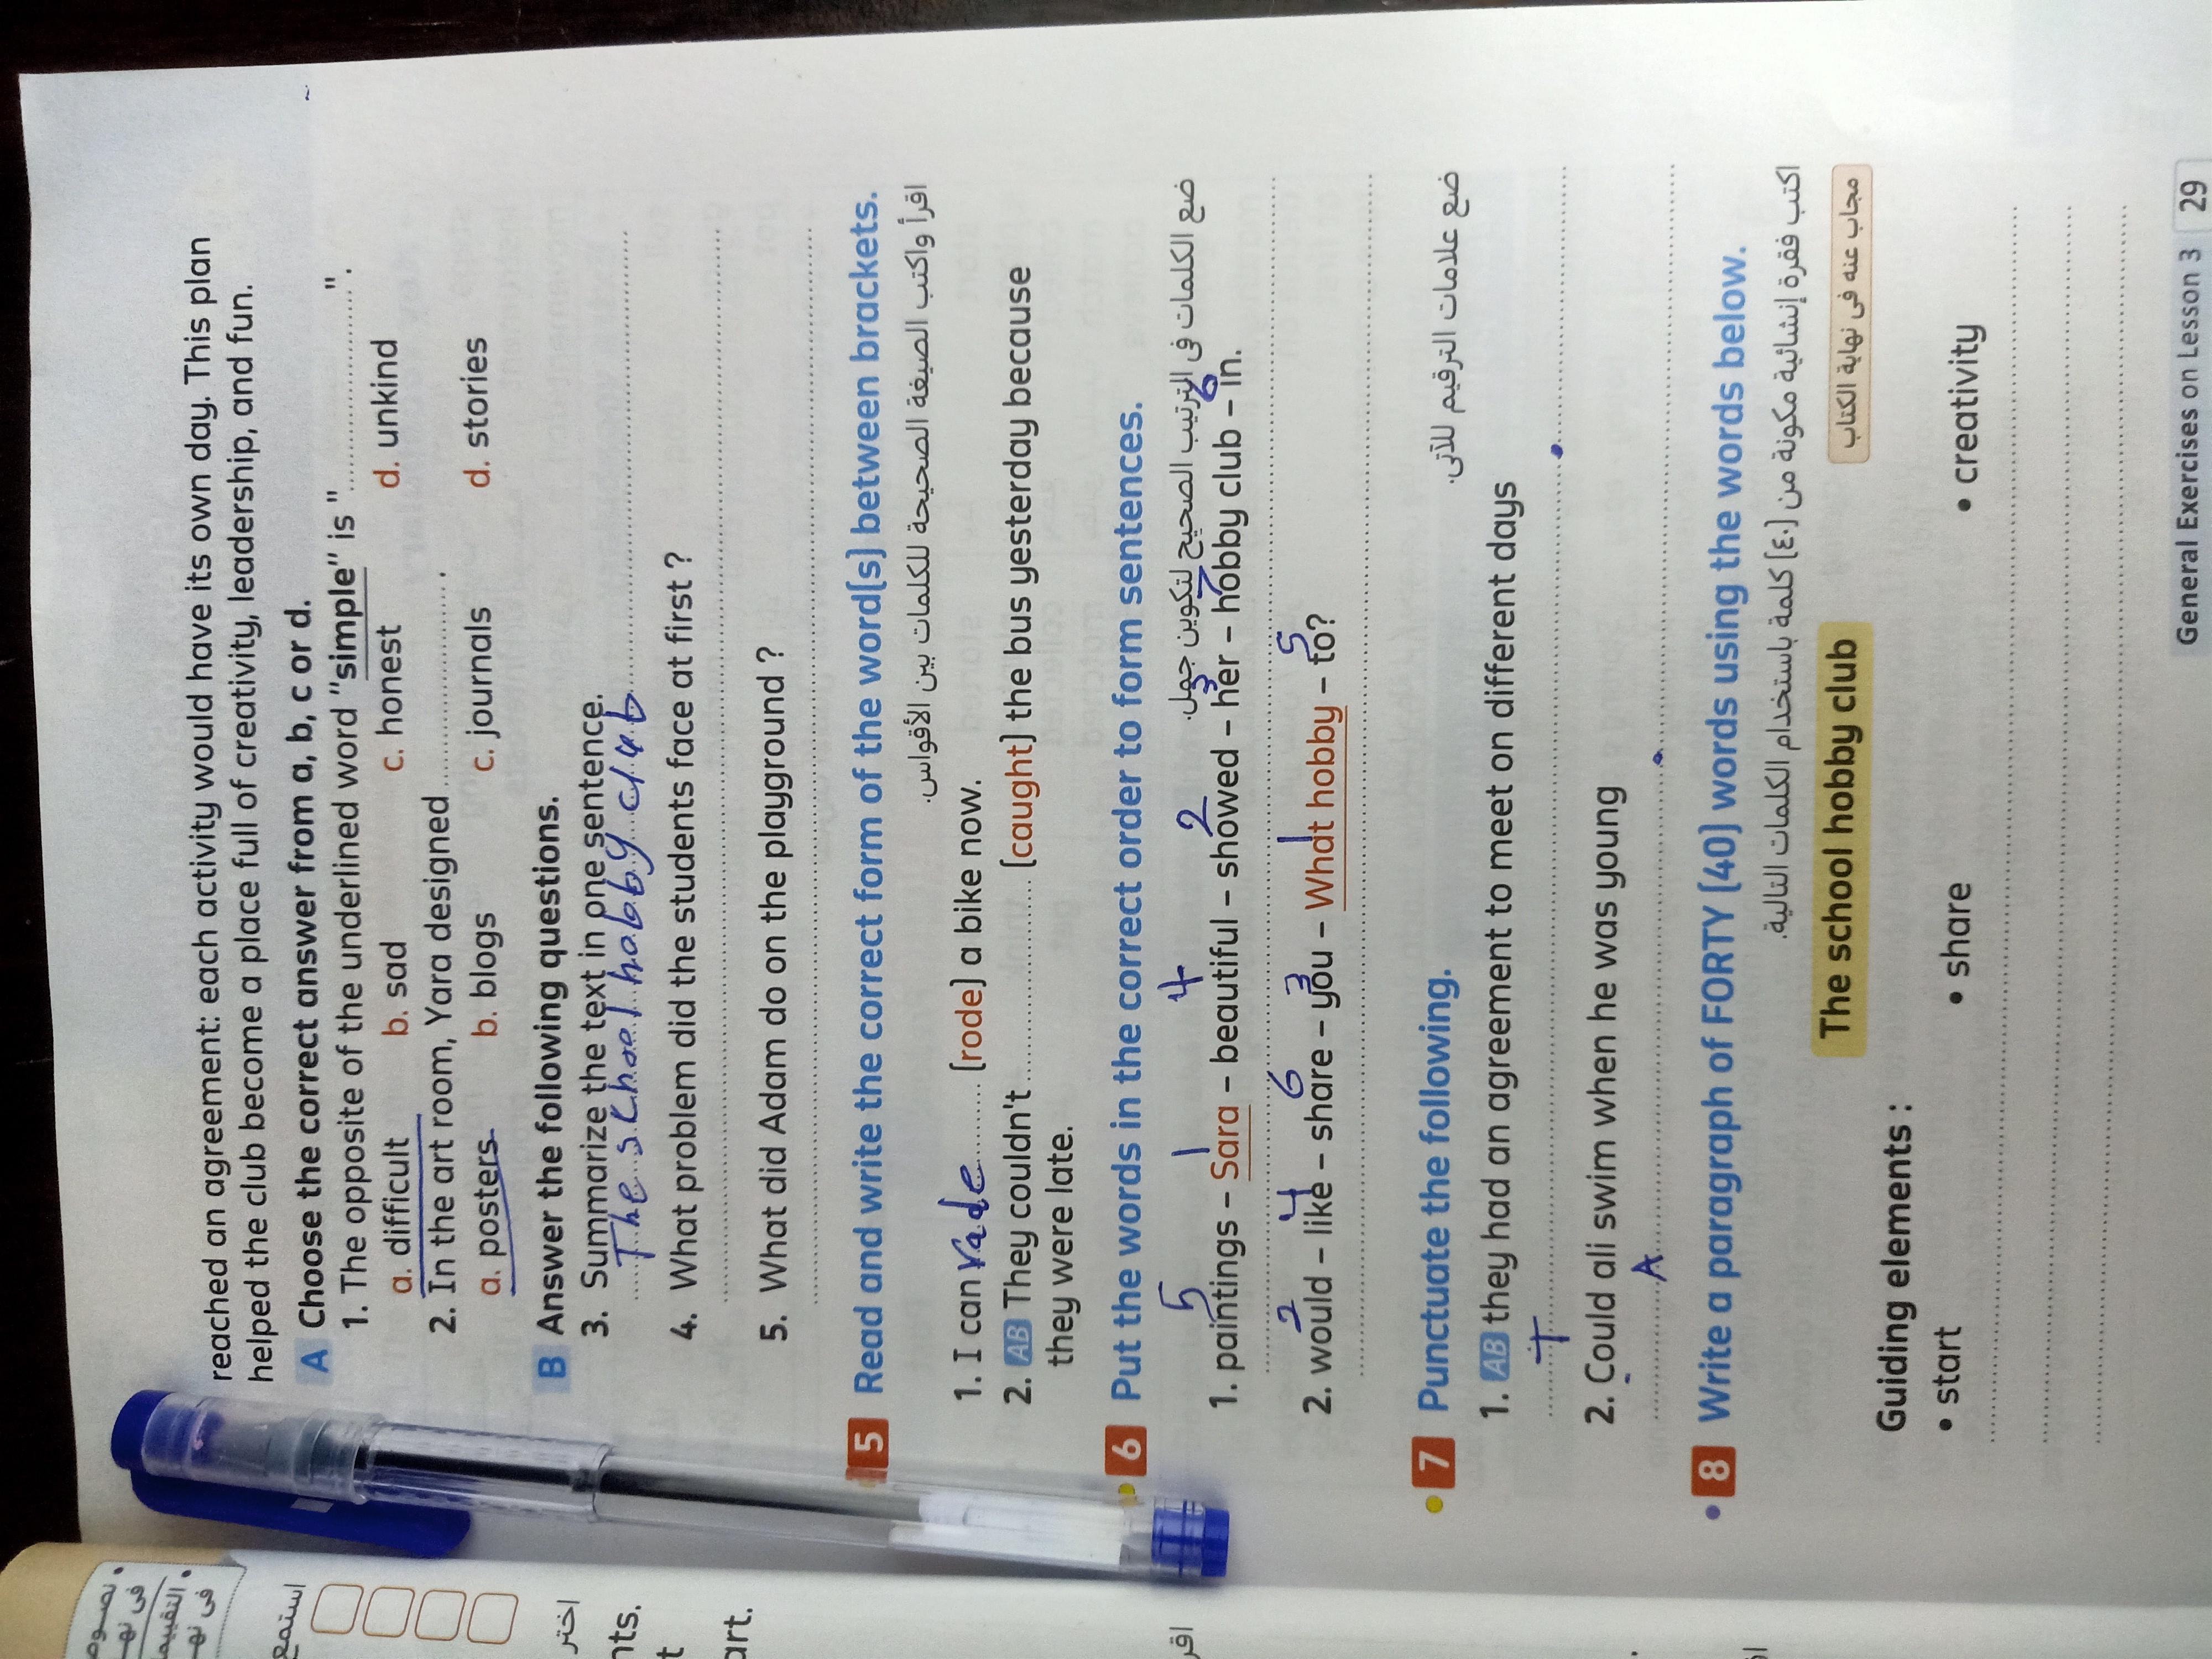 reached an agreement: each activity would have its own day. This plan
helped the club become a place full of creativity, leadership, and fun.
A Choose the correct answer from a, b, c or d.
1. The opposite of the underlined word "simple" is "....................".
a. difficult b. sad c. honest d. unkind
2. In the art room, Yara designed .................... .
a. posters b. blogs c. journals d. stories
B Answer the following questions.
3. Summarize the text in one sentence.
The school hobby club
4. What problem did the students face at first ?
5. What did Adam do on the playground ?
5 Read and write the correct form of the word(s) between brackets.
اقرأ واكتب الصيغة الصحيحة للكلمات بين الأقواس.
1. I can rade .......... (rode) a bike now.
2. AB They couldn't .................... (caught) the bus yesterday because
they were late.
6 Put the words in the correct order to form sentences.
ضع الكلمات فى الترتيب الصحيح لتكوين جمل.
5 1 4 2 3 7 6
1. paintings – Sara – beautiful – showed – her – hobby club – in.
2 4 6 3 1 5
2. would – like – share – you – What hobby – to?
7 Punctuate the following.
ضع علامات الترقيم للآتى.
1. AB they had an agreement to meet on different days
T .
2. Could ali swim when he was young
A .
8 Write a paragraph of FORTY (40) words using the words below.
اكتب فقرة إنشائية مكونة من (٤٠) كلمة باستخدام الكلمات التالية.
The school hobby club
مجاب عنه فى نهاية الكتاب
Guiding elements :
• start • share • creativity
General Exercises on Lesson 3 29
استمع
اختر
nts.
t
art.
اقر